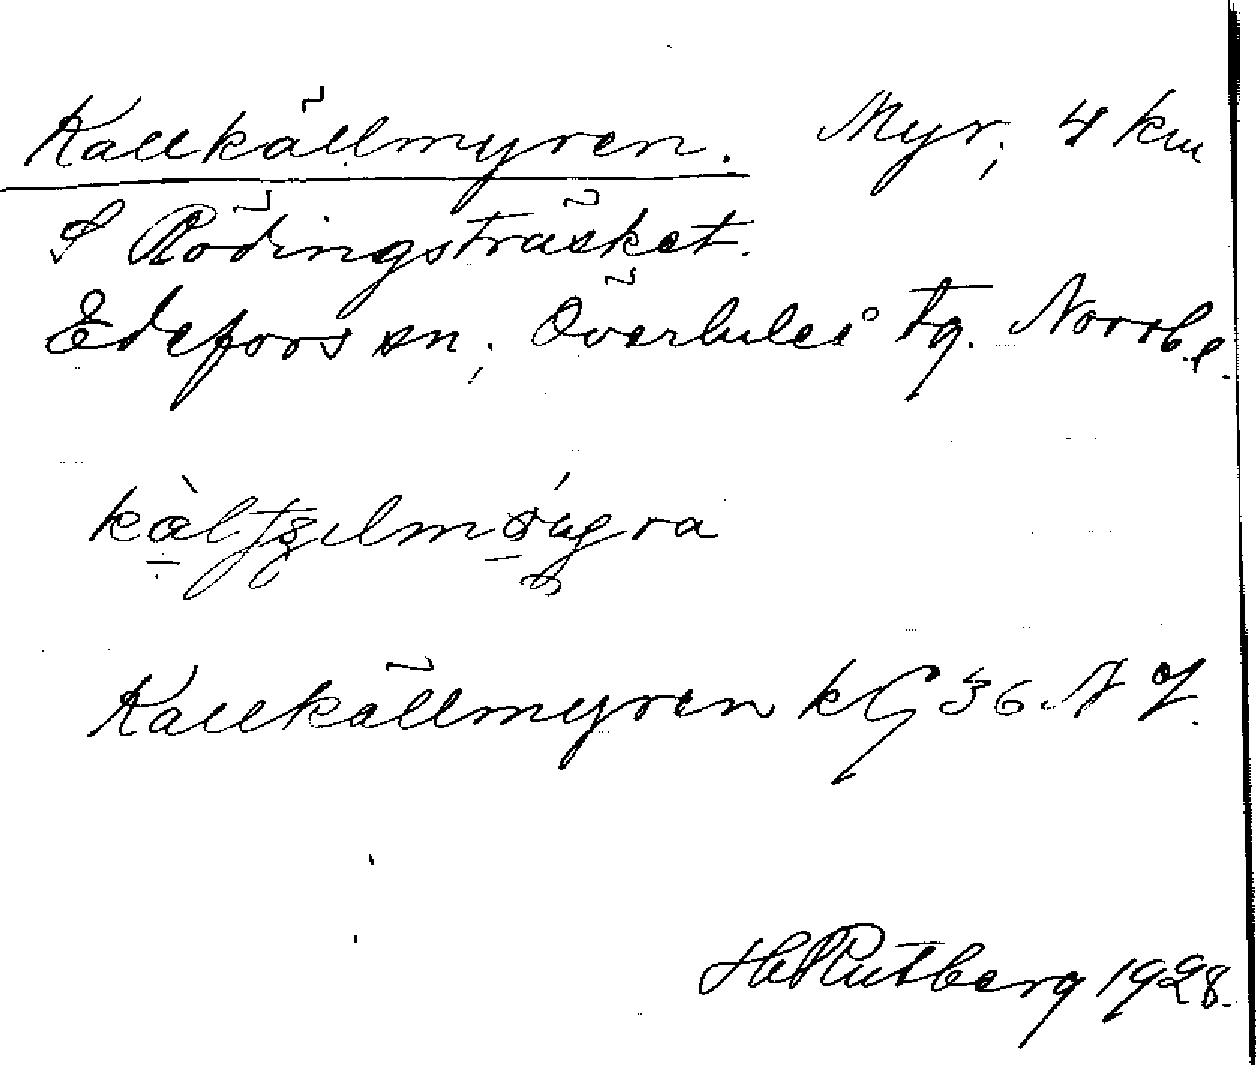 Kallkällmyren. Myr, 4 km
S Rödingsträsket.
Edefors sn, Överluleå tg. Norrb. l.
Kallkällmyren kG 36 NJ.
H. Rutberg 1928.